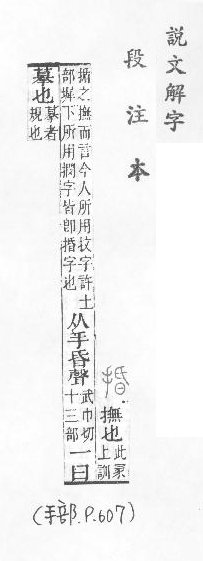 說文解字
段注本
捪
撫也
此冡
上訓
揗之撫而言今人所用抆字許土
部墀下所用字皆卽捪字也
从手昏聲
武巾切
十三部
一曰
摹也
摹者
規也
(手部.P.607)